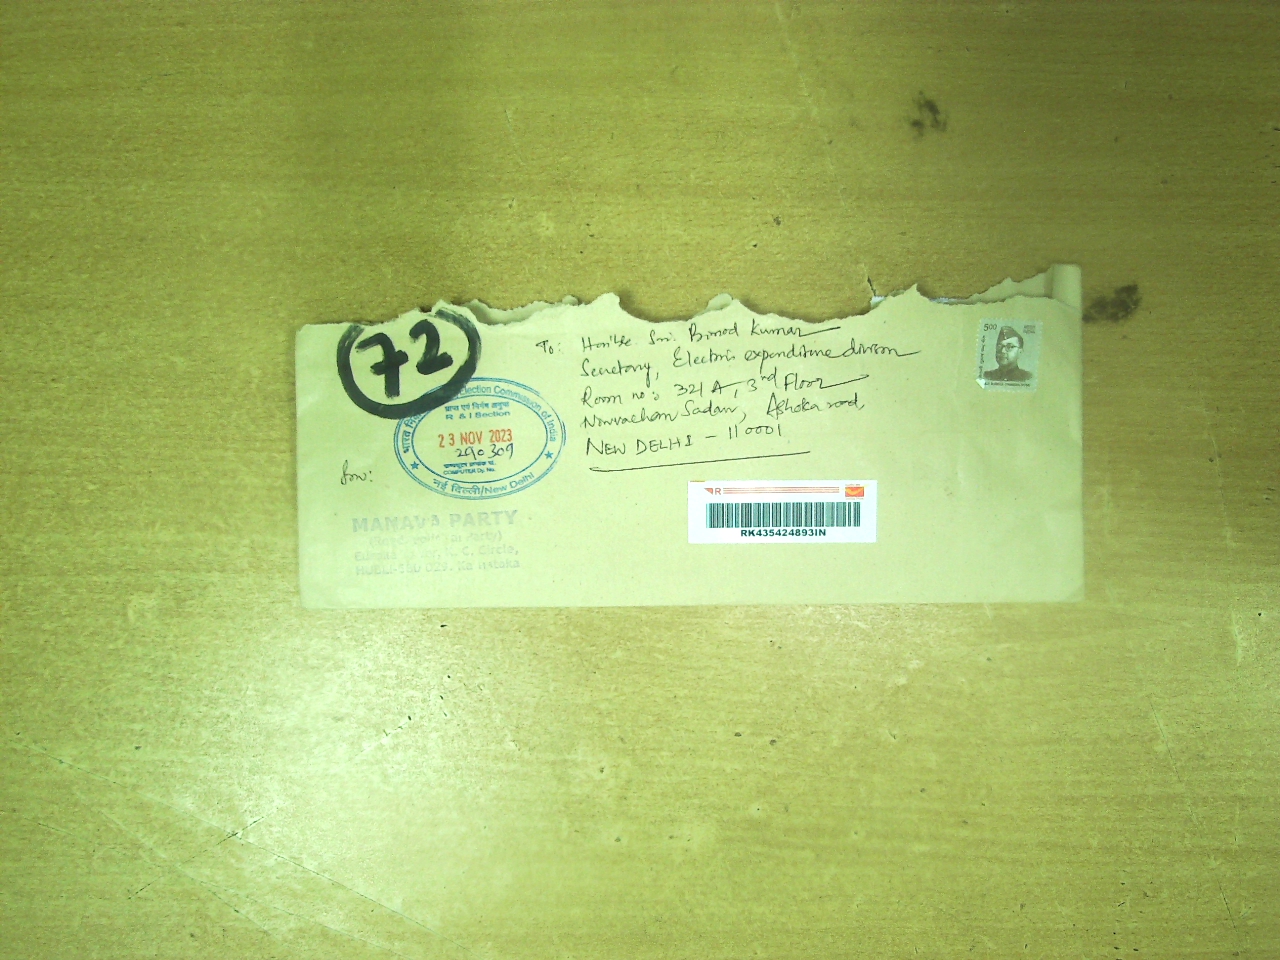 72
To: Hon'ble Sri. Binod Kumar
Secretary, Electric expenditure division
Room no: 321 A, 3rd Floor
Nirvachan Sadan, Ashoka road,
NEW DELHI - 110001.
500
Election Commission of India
प्राप्त एवं निर्गम अनुभाग
R & I Section
23 NOV 2023
290309
COMPUTER Dy. No.
नई दिल्ली/New Delhi
From:
MANAVA PARTY
C. Circle,
R
RK435424893IN